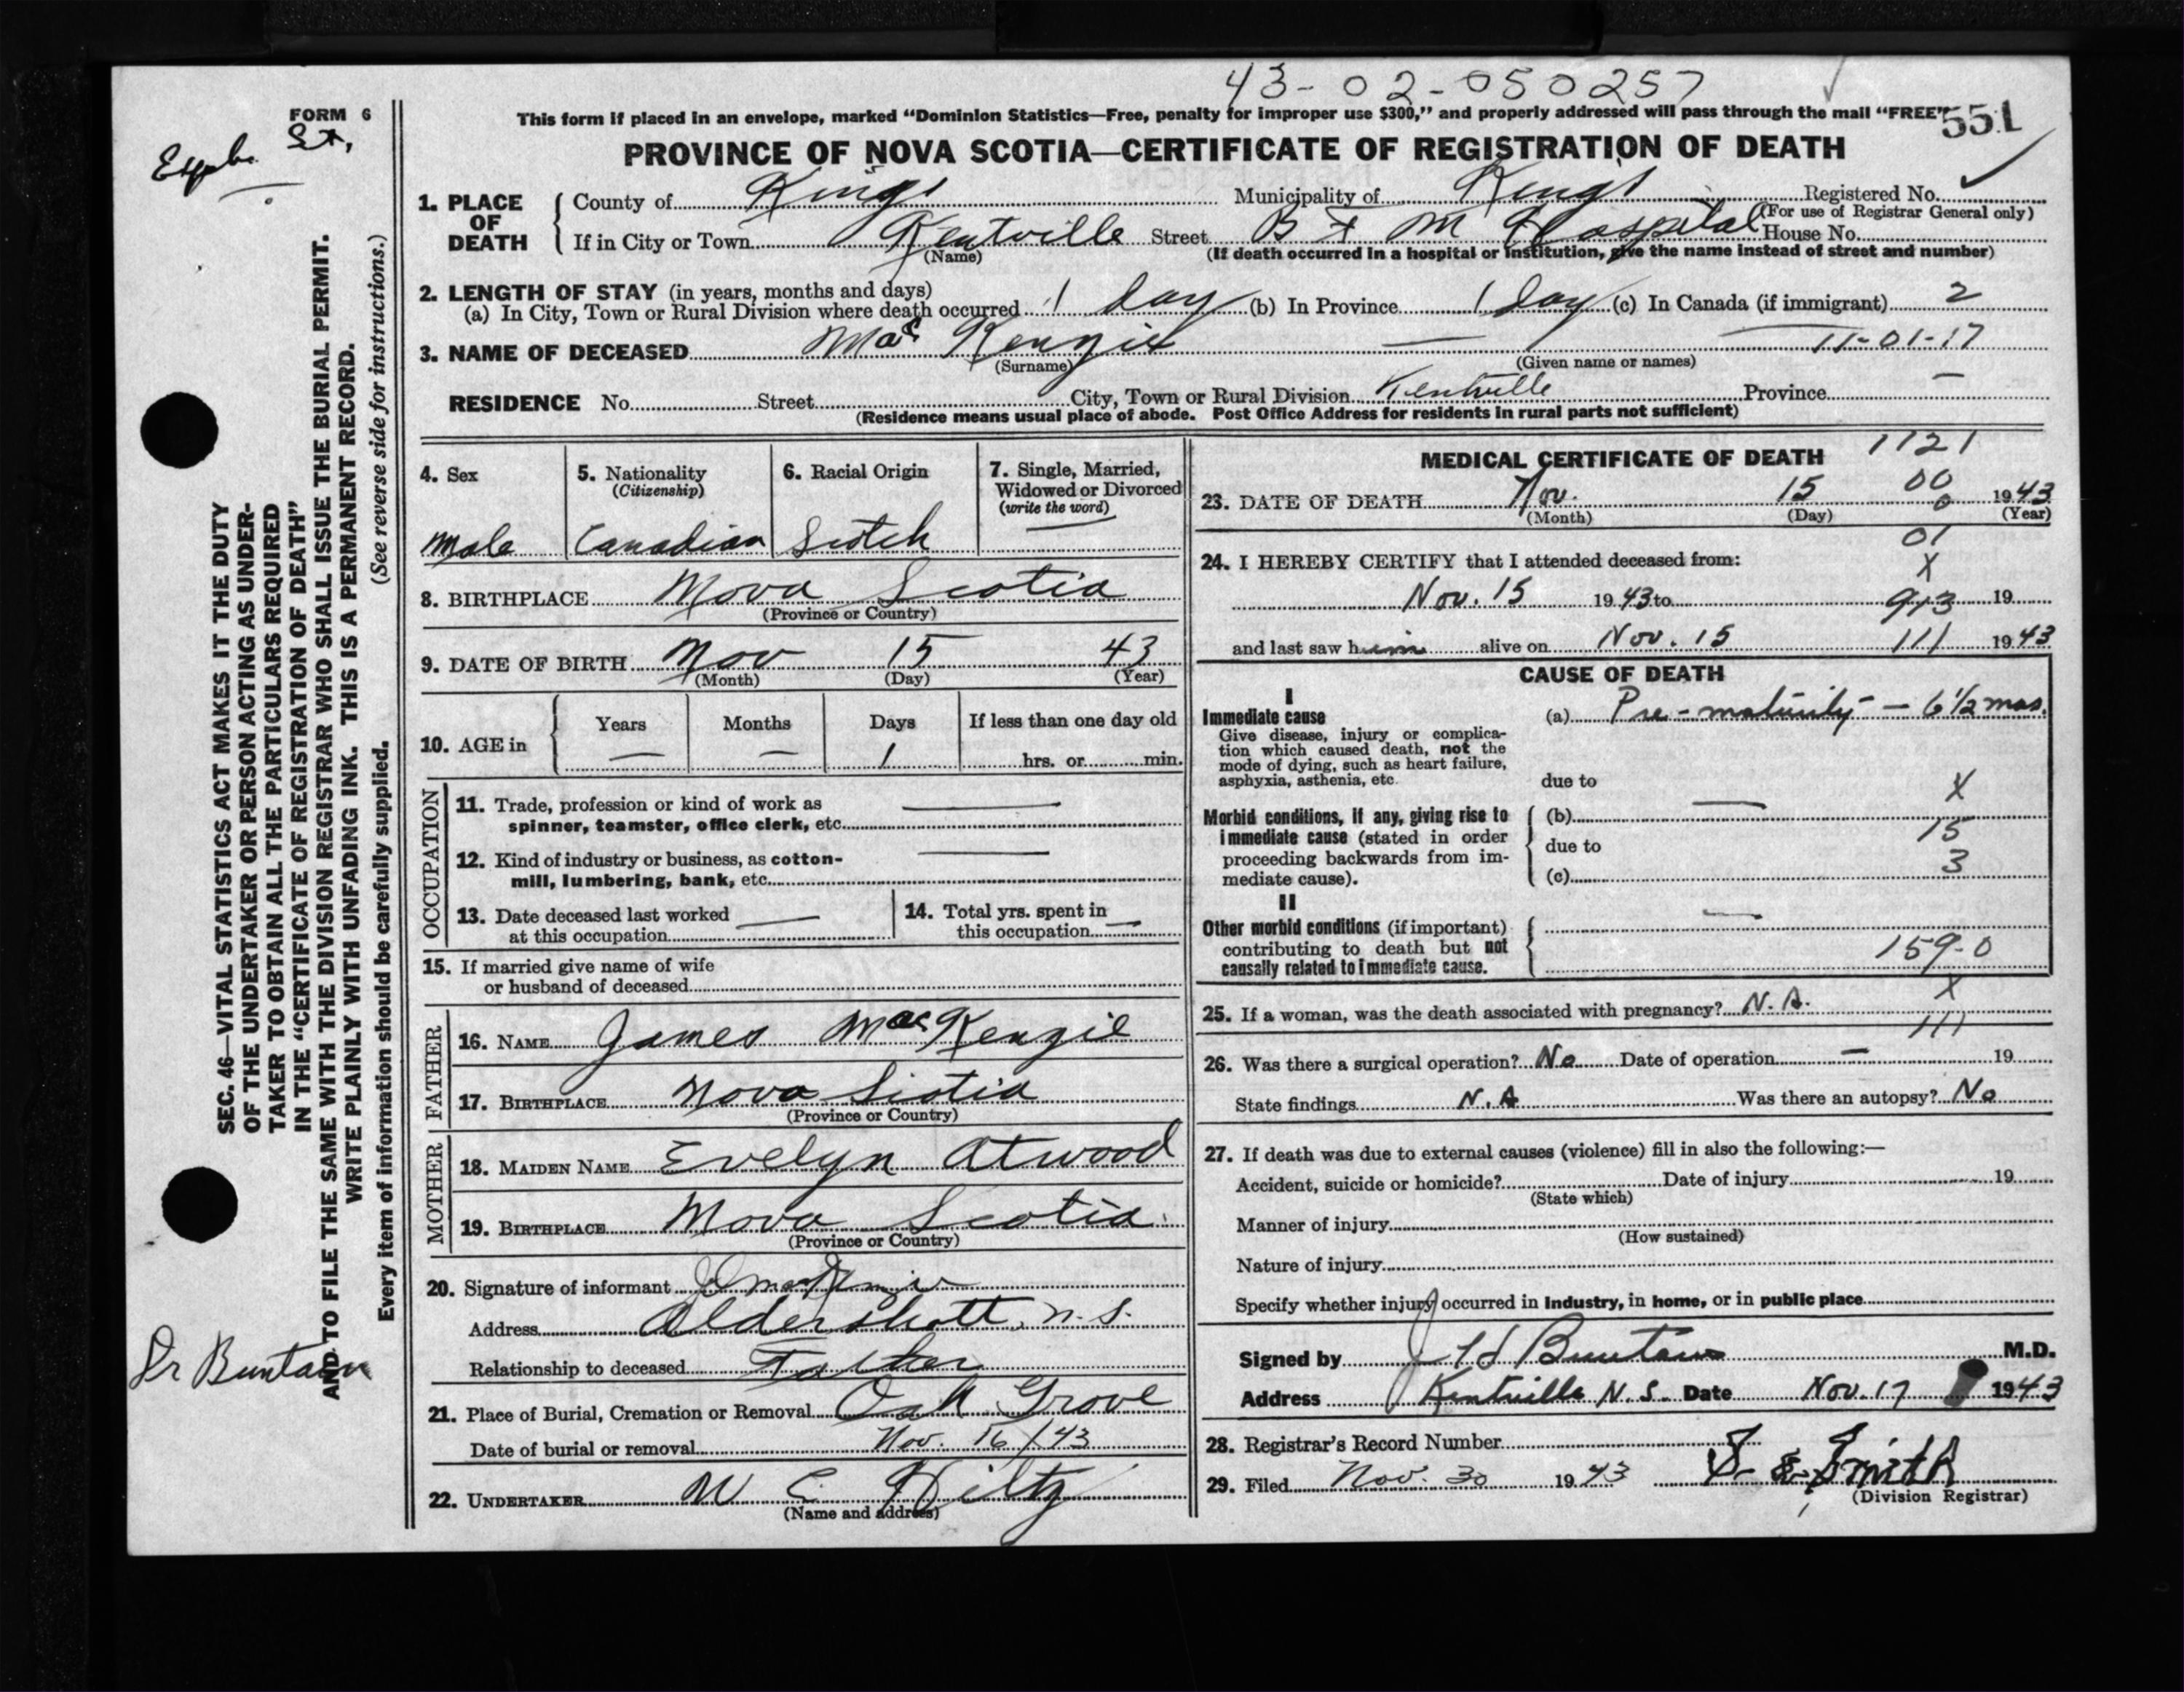 43-02-050257
FORM 6
St,
This form if placed in an envelope, marked "Dominion Statistics—Free, penalty for improper use $300," and properly addressed will pass through the mail "FREE"
551
PROVINCE OF NOVA SCOTIA—CERTIFICATE OF REGISTRATION OF DEATH
1. PLACE OF DEATH
County of Kings Municipality of Kings Registered No.
(For use of Registrar General only)
If in City or Town Kentville Street B F M Hospital House No.
(Name) (If death occurred in a hospital or institution, give the name instead of street and number)
2. LENGTH OF STAY (in years, months and days)
(a) In City, Town or Rural Division where death occurred 1 day (b) In Province 1 day (c) In Canada (if immigrant) 2
3. NAME OF DECEASED Mac Kenzie — — 11-01-17
(Surname) (Given name or names)
RESIDENCE No. Street City, Town or Rural Division Kentville Province —
(Residence means usual place of abode. Post Office Address for residents in rural parts not sufficient)
4. Sex
male
5. Nationality
(Citizenship)
Canadian
6. Racial Origin
Scotch
7. Single, Married, Widowed or Divorced
(write the word)
—
8. BIRTHPLACE Nova Scotia
(Province or Country)
9. DATE OF BIRTH Nov 15 43
(Month) (Day) (Year)
10. AGE in
Years Months Days If less than one day old
— — 1 hrs. or min.
OCCUPATION
11. Trade, profession or kind of work as —
spinner, teamster, office clerk, etc.
12. Kind of industry or business, as cotton- —
mill, lumbering, bank, etc.
13. Date deceased last worked —
at this occupation
14. Total yrs. spent in
this occupation —
15. If married give name of wife
or husband of deceased
FATHER
16. NAME James Mac Kenzie
17. BIRTHPLACE Nova Scotia
(Province or Country)
MOTHER
18. MAIDEN NAME Evelyn Atwood
19. BIRTHPLACE Nova Scotia
(Province or Country)
20. Signature of informant
Address Aldershott, N.S.
Relationship to deceased Father
21. Place of Burial, Cremation or Removal Oak Grove
Date of burial or removal Nov. 16/43
22. UNDERTAKER W C Hiltz
(Name and address)
MEDICAL CERTIFICATE OF DEATH 1121
00
23. DATE OF DEATH Nov. 15 0 1943
(Month) (Day) (Year)
01
24. I HEREBY CERTIFY that I attended deceased from:
X
Nov. 15 1943 to 913 19
and last saw him alive on Nov. 15 111 1943
CAUSE OF DEATH
I
Immediate cause
Give disease, injury or complica-
tion which caused death, not the
mode of dying, such as heart failure,
asphyxia, asthenia, etc.
(a) Pre-maturity — 6½ mos.
due to
X
Morbid conditions, if any, giving rise to
immediate cause (stated in order
proceeding backwards from im-
mediate cause).
(b) —
due to 15
3
(c)
II
Other morbid conditions (if important)
contributing to death but not
causally related to immediate cause.
—
159-0
X
25. If a woman, was the death associated with pregnancy? N.A.
111
26. Was there a surgical operation? No Date of operation — 19
State findings N.A Was there an autopsy? No
27. If death was due to external causes (violence) fill in also the following:—
Accident, suicide or homicide? Date of injury 19
(State which)
Manner of injury
(How sustained)
Nature of injury
Specify whether injury occurred in Industry, in home, or in public place
Signed by J H Buntain M.D.
Address Kentville N.S. Date Nov. 17 1943
28. Registrar's Record Number
29. Filed Nov. 30 1943 Smith
(Division Registrar)
SEC. 46—VITAL STATISTICS ACT MAKES IT THE DUTY
OF THE UNDERTAKER OR PERSON ACTING AS UNDER-
TAKER TO OBTAIN ALL THE PARTICULARS REQUIRED
IN THE "CERTIFICATE OF REGISTRATION OF DEATH"
AND TO FILE THE SAME WITH THE DIVISION REGISTRAR WHO SHALL ISSUE THE BURIAL PERMIT.
WRITE PLAINLY WITH UNFADING INK. THIS IS A PERMANENT RECORD.
(See reverse side for instructions.)
Every item of information should be carefully supplied.
Dr Buntain